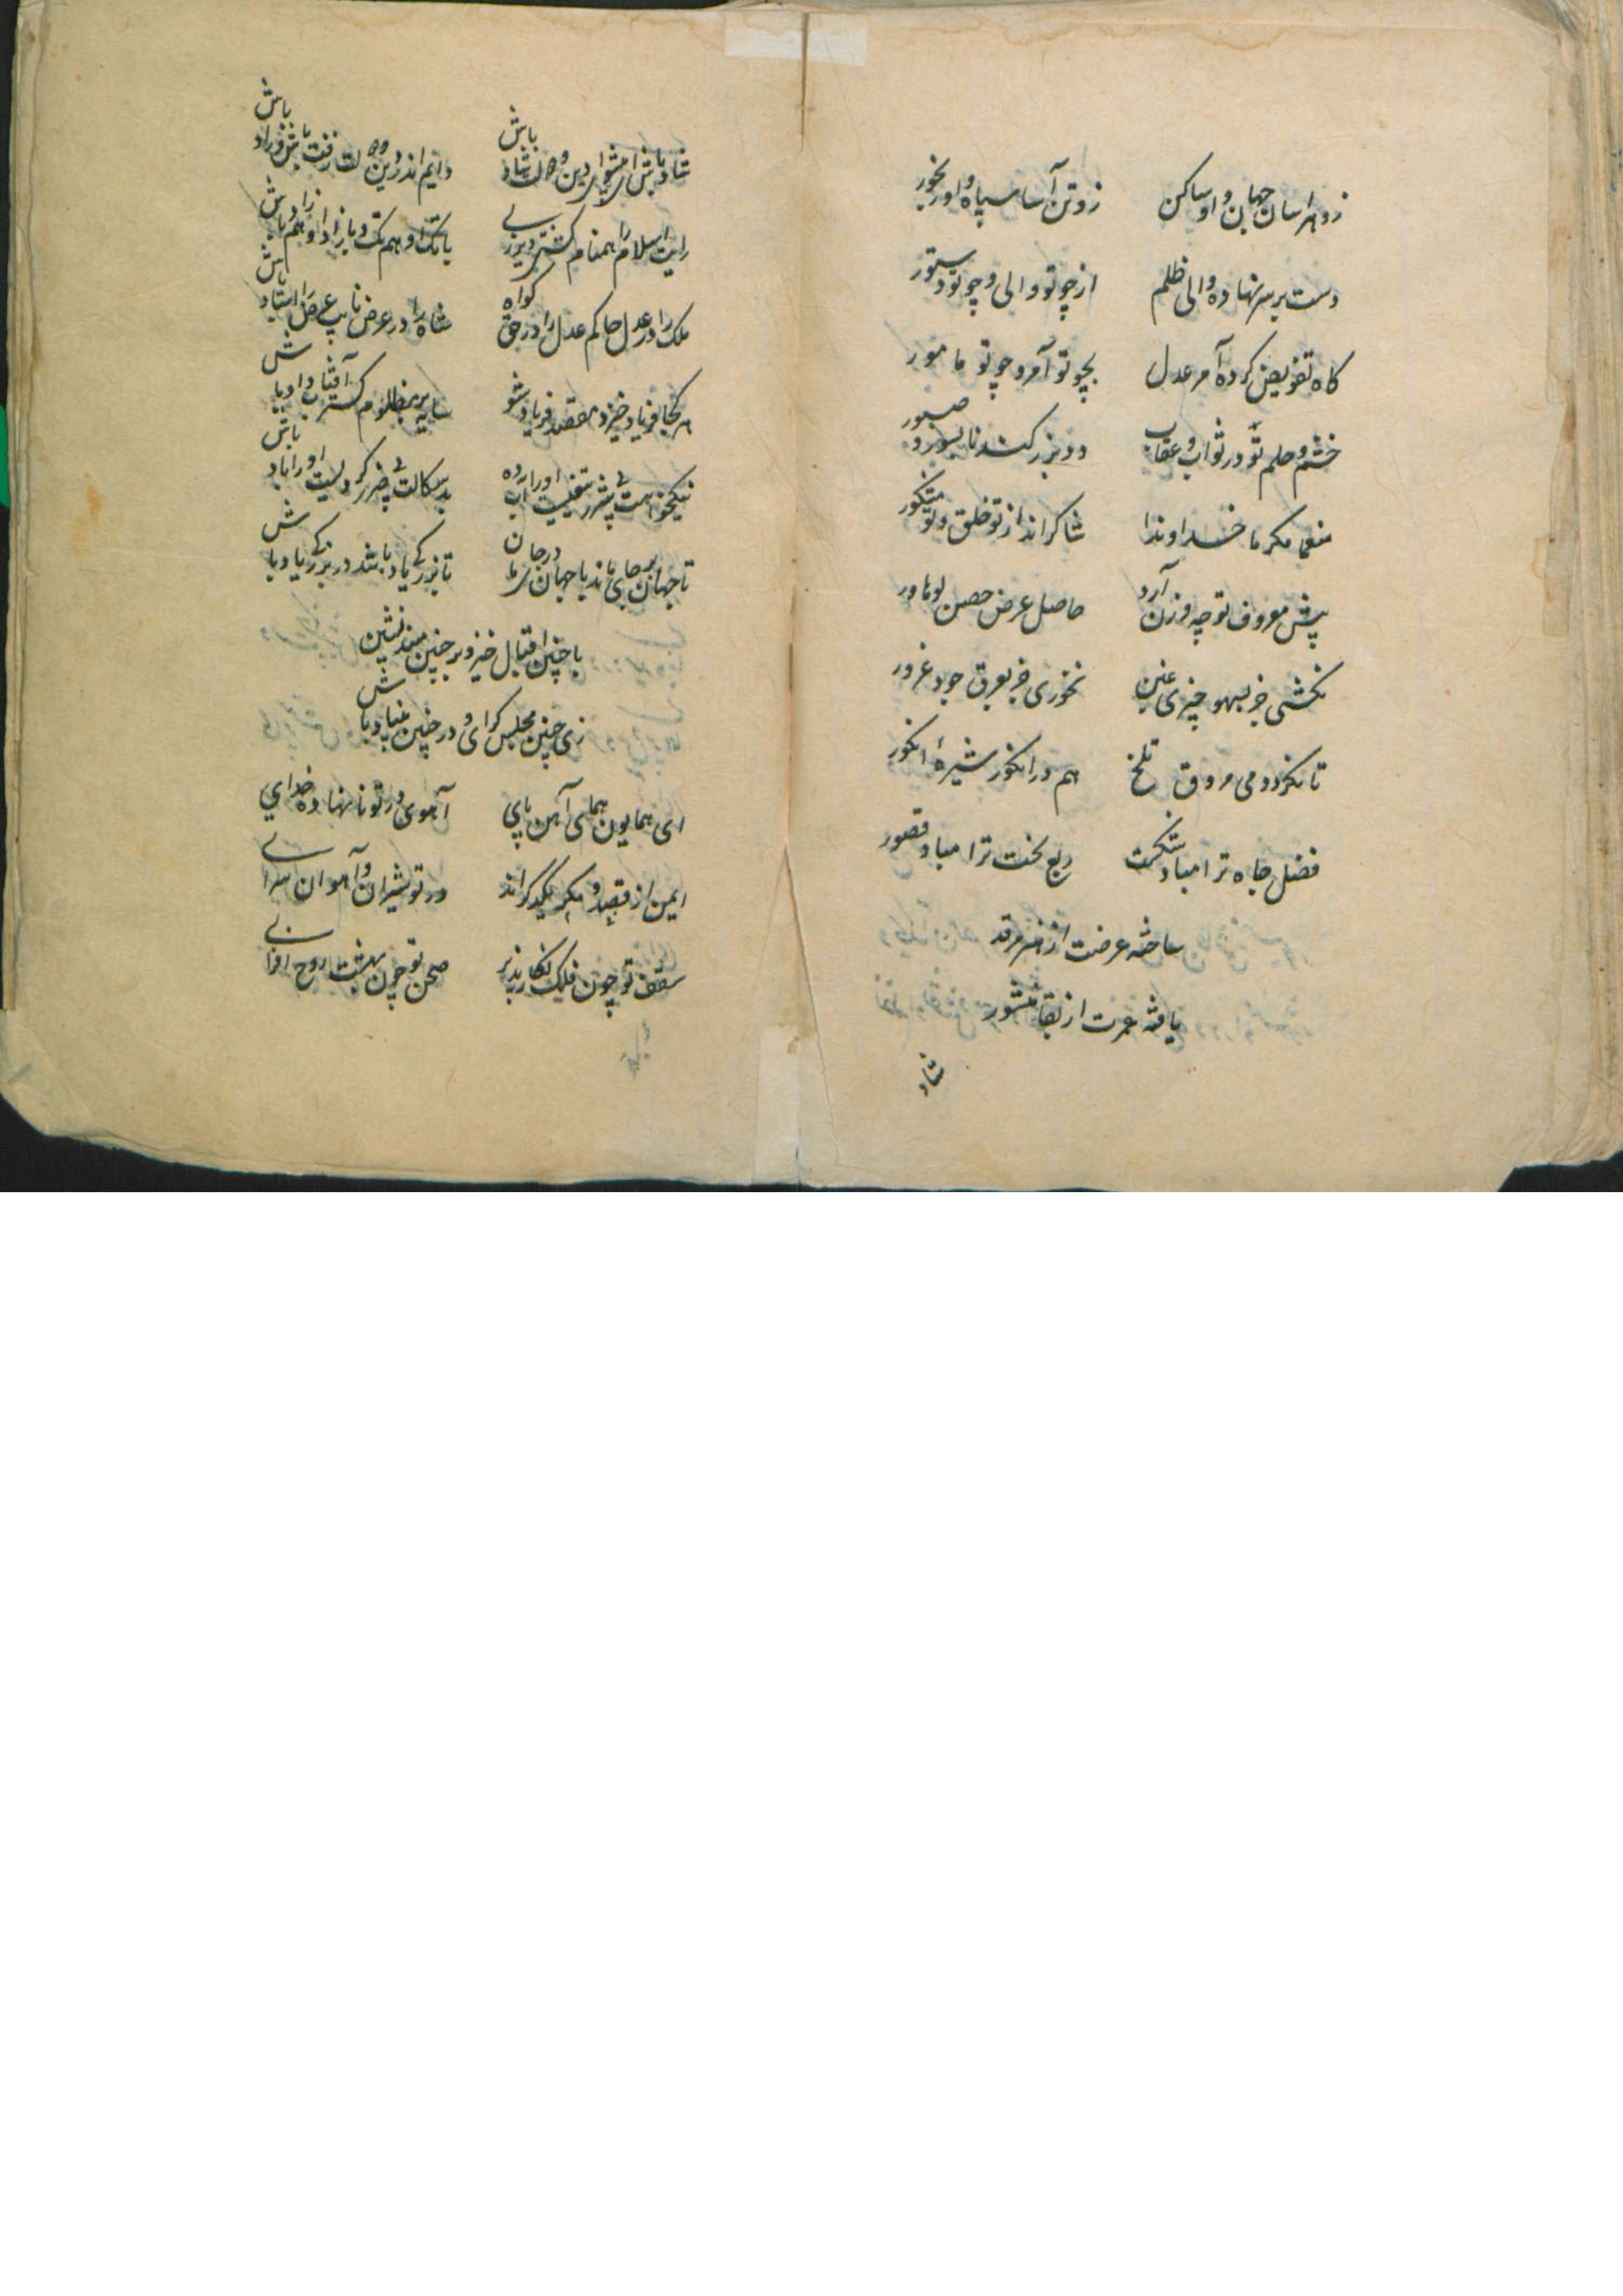 زو هراسان جهان و او ساکن زو تن آسا سپاه و او رنجور
دست بر سر نهاده والی ظلم از چو تو والی و چو تو دستور
کاه تفویض کرده آمر عدل بچو تو آمر و چو تو مامور
خشم و حلم تو در ثواب و عقاب دو بزرکند ناسور و صبور
منعما مکرما خداوندا شاکراند از تو خلق و تو مشکور
پیش معروف تو چه وزن آرد حاصل عرض حصن لوهاور
نکشی جز بسهو چیزی عین نخوری جز بعرق جود غرور
تا نکردد می مروق تلخ هم در انکور شیرهٔ انکور
فضل جاه ترا مباد شکست ربع بخت ترا مباد قصور
ساخته عرضت از هنر مرقد
یافته عمرت از بقا منشور
شاد
شاد باش ای پیشوای دین و دولت شاد باش دایم اندر دین و دولت رفت باش و راد باش
رایت اسلام را همنام کشتی دیر زی با تکت او هم تکت و با زاد او هم زاد باش
ملک را در عدل حاکم عدل را در حق کواه شاه را در عرض نایب عرض را استاد باش
هر کجا فریاد خیزد مقصد فریاد شو سایه بر مظلوم کستر آفتاب داد باش
نیکخواهت بی شرر تفیست او را آب ده بد سکالت بی ضرر کردیست او را باد باش
تا جهان بر جای ماند با جهان بر جای مان تا بزرکی یاد باشد در بزرکی یاد باش
با چنین اقبال خیز و بر چنین مسند نشین
زی چنین مجلس کرای و در چنین بنیاد باش
ای همایون همای آهن پای آهوی در تو نا نهاده خدای
ایمن از قصد و مکر یکدکراند در تو شیران و آهوان سرای
سقف تو چون فلک نکار پذیر صحن تو چون بهشت روح افزای